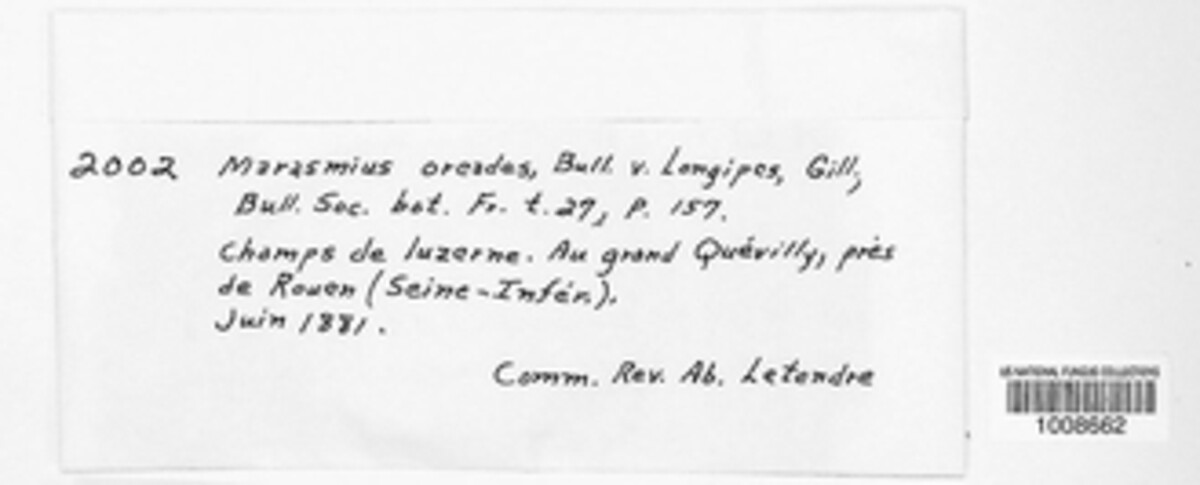 2002 Marasmius oreades, Bull. v. Longipes, Gill.,
Bull. Soc. bot. Fr. t. 27, P. 157.
Champs de luzerne. Au grand Quévilly, près
de Rouen (Seine-Infér.).
Juin 1881.
Comm. Rev. Ab. Letendre
US NATIONAL FUNGUS COLLECTIONS
1008662